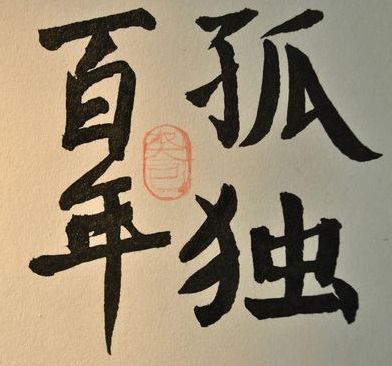 百年
孤独